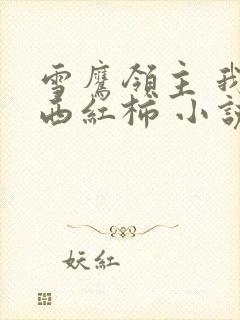 雪鷹領主 我
西紅柿 小說
妖紅